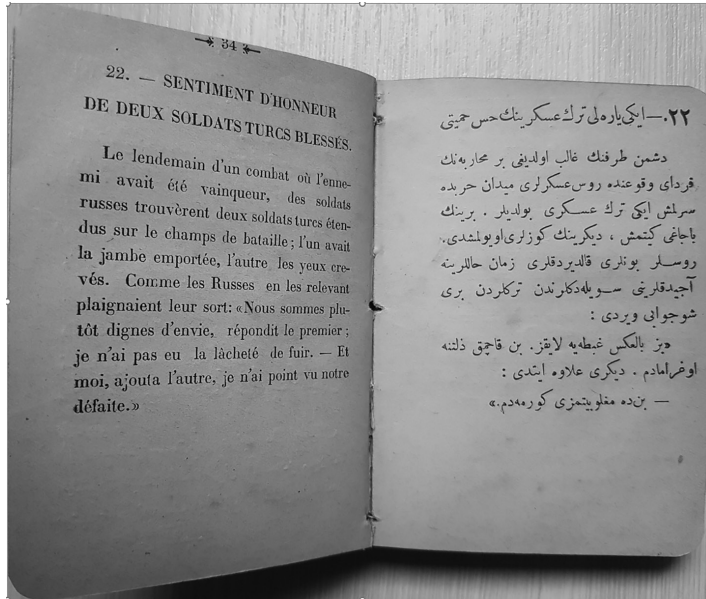 34
22. — SENTIMENT D'HONNEUR
DE DEUX SOLDATS TURCS BLESSÉS.
Le lendemain d'un combat où l'enne-
mi avait été vainqueur, des soldats
russes trouvèrent deux soldats turcs éten-
dus sur le champs de bataille; l'un avait
la jambe emportée, l'autre les yeux cre-
vés. Comme les Russes en les relevant
plaignaient leur sort: «Nous sommes plu-
tôt dignes d'envie, répondit le premier;
je n'ai pas eu la lâcheté de fuir. — Et
moi, ajouta l'autre, je n'ai point vu notre
défaite.»
٢٢.— ایکی یارەلی ترك عسكرینك حس حمیتی
دشمن طرفنك غالب اولدیغی بر محاربەنك
فردای وقوعنده روس عسكرلری میدان حربده
سرلمش ایکی ترك عسكری بولدیلر . برینك
باجاغی كیتمش ، دیكرینك كوزلری اویولمشدی.
روسلر بونلری قالدیردقلری زمان حاللرینه
آجیدقلرینی سویلەدكلرندن تركلردن بری
شو جوابی ویردی :
«بز بالعكس غبطەیه لایقز. بن قاچمق ذلتنه
اوغرامادم . دیكری علاوه ایتدی :
— بن‌ده مغلوبیتمزی كورمەدم.»